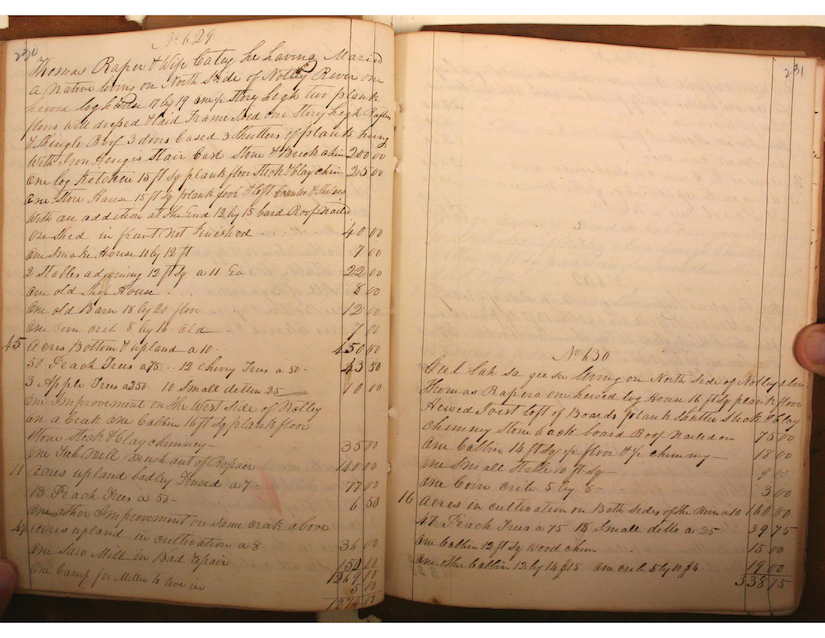 230
No 629
Thomas Raper & Wife Catey he having Maried
a Native living on North Side of Notley River one
hewed log house 17 by 19 one story high two plank
floors well dressed & laid Frame Shed one Story high Rafters
& Shingle Roof 3 doors Cased 3 Shutters of plank hung
With Iron Hinges Stair Case Stone & Brick chim 200 00
One log Kitchen 15 ft Sq plank floor Stick & Clay chim 25 00
One Store House 15 ft Sq plank floor & loft
With an addition at the End 12 by 15 board Roof Nailed
One Shed in front Not Finished 40 00
One Smoke House 11 by 12 ft 7 00
2 Stables adjoining 12 ft Sq a 11 Ea 22 00
One old Shop House 8 00
One old Barn 18 by 20 floor 12 00
One Corn crib 8 by 16 old 7 00
45 acres Bottom & upland a 10 450 00
50 Peach Trees a 75 12 Cherry Trees a 50 43 50
3 Apple Trees a 250 10 Small ditto 25 10 00
One Improvement on the West Side of Notley
on a Creak one Cabbin 16 ft Sq plank floor
Stone Stick & Clay chimney 35 00
One Mill Much out of Repair 140 00
11 acres upland badley Fenced a 7 77 00
13 Peach Trees a 50 6 50
One other Improvement on Same creak above
4½ acres upland in cultivation a 8 36 00
One Saw Mill in Bad repair 150 00
1269 00
One Camp for Miller to live in 5 00
1274 00
231
No 630
living on North Side of Notley
Thomas Rapers one hewed log House 16 ft Sq plank floor
Hewed Joist loft of Boards plank Shutter Stick & Clay
chimney Stone back board Roof Nailed on 75 00
One Cabbin 14 ft Sq floor & chimney 18 00
One Small Stable 10 ft Sq 9 00
One Corn crib 5 by 8 3 00
16 acres in cultivation on Both Sides of the River a 10 160 00
47 Peach Trees a 75 18 Small ditto a 25 39 75
One Cabbin 12 ft Sq Wood chim 15 00
One other Cabbin 12 by 14 one crib 5 by 10 19 00
338 75